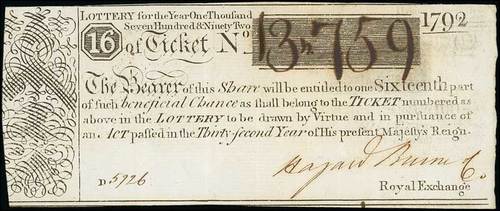 LOTTERY for the Year One Thousand
Seven Hundred & Ninety Two
1792
16 of Ticket No. 13,759
The Bearer of this Share will be entitled to one Sixteenth part
of such beneficial Chance as shall belong to the TICKET numbered as
above in the LOTTERY to be drawn by Virtue and in pursuance of
an ACT passed in the Thirty-second Year of His present Majesty's Reign.
Hazard Burne & Co.
D 5926
Royal Exchange